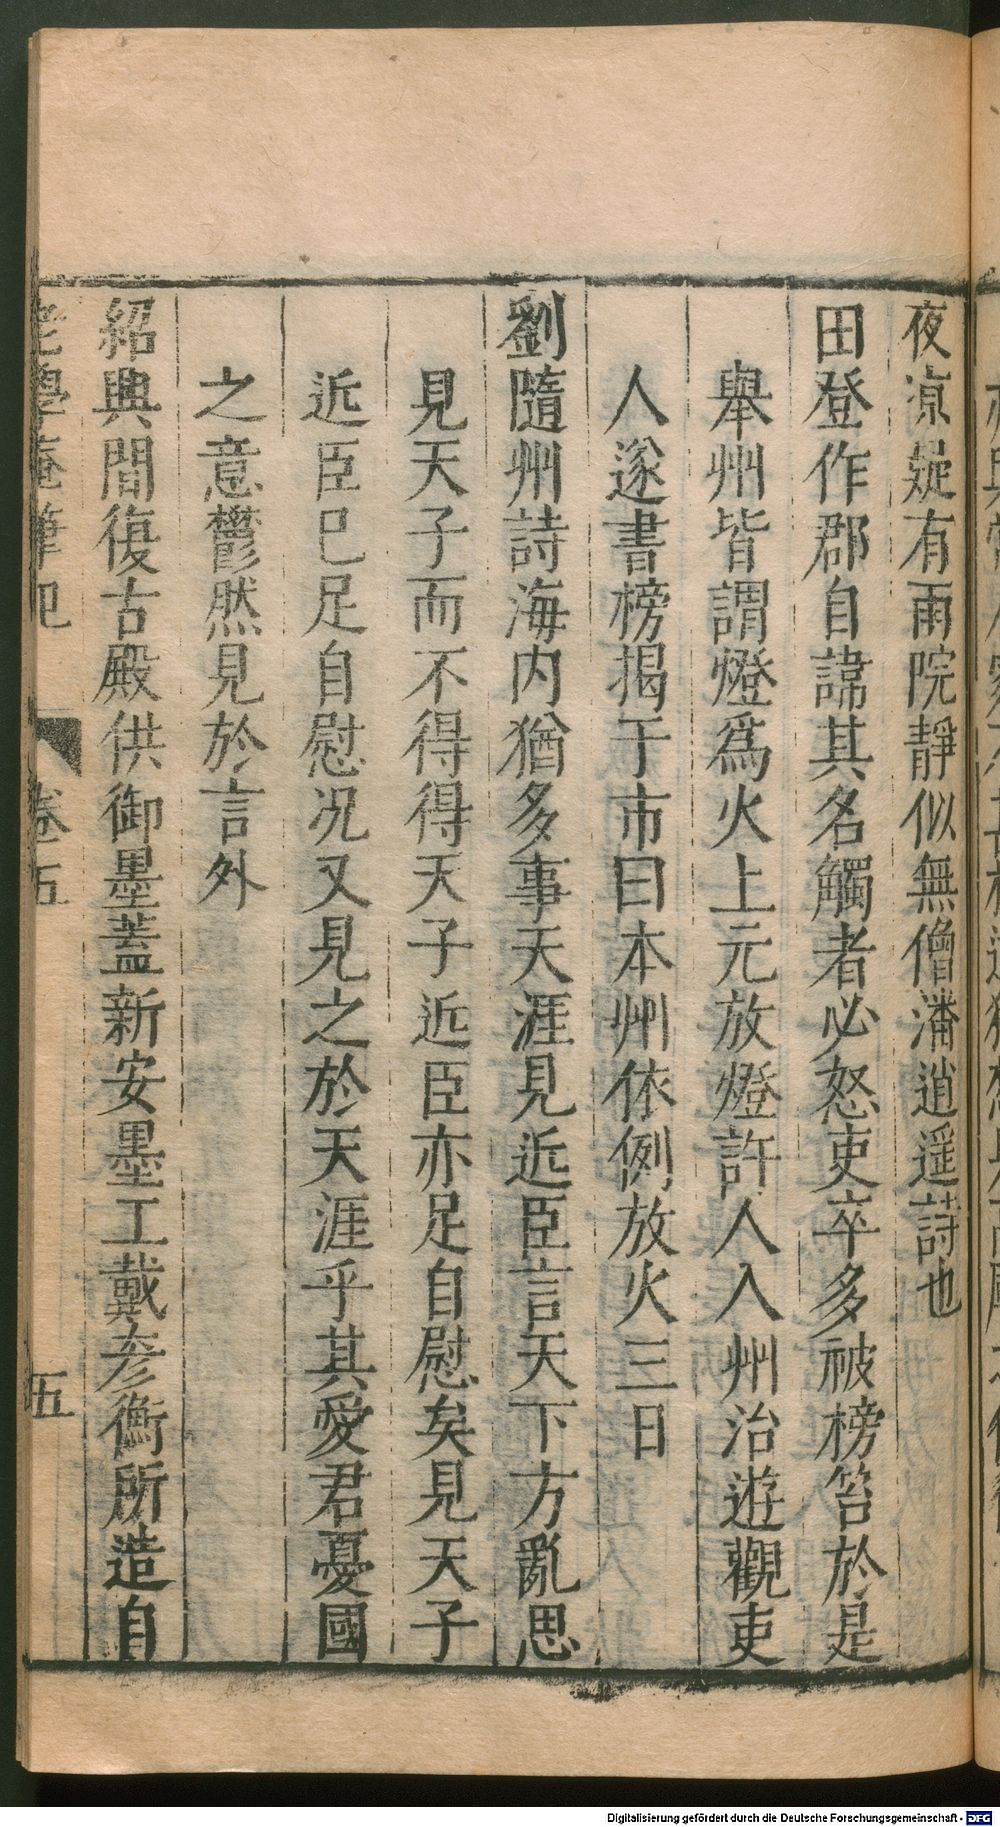 夜凉疑有雨院靜似無僧潘逍遥詩也
田登作郡自諱其名觸者必怒吏卒多被榜笞於是
舉州皆謂燈爲火上元放燈許人入州治遊觀吏
人遂書榜揭于市曰本州依例放火三日
劉隨州詩海内猶多事天涯見近臣言天下方亂思
見天子而不得得天子近臣亦足自慰矣見天子
近臣已足自慰况又見之於天涯乎其愛君憂國
之意鬱然見於言外
紹興間復古殿供御墨蓋新安墨工戴彥衡所造自
老學庵筆記 卷五 五
Digitalisierung gefördert durch die Deutsche Forschungsgemeinschaft - DFG